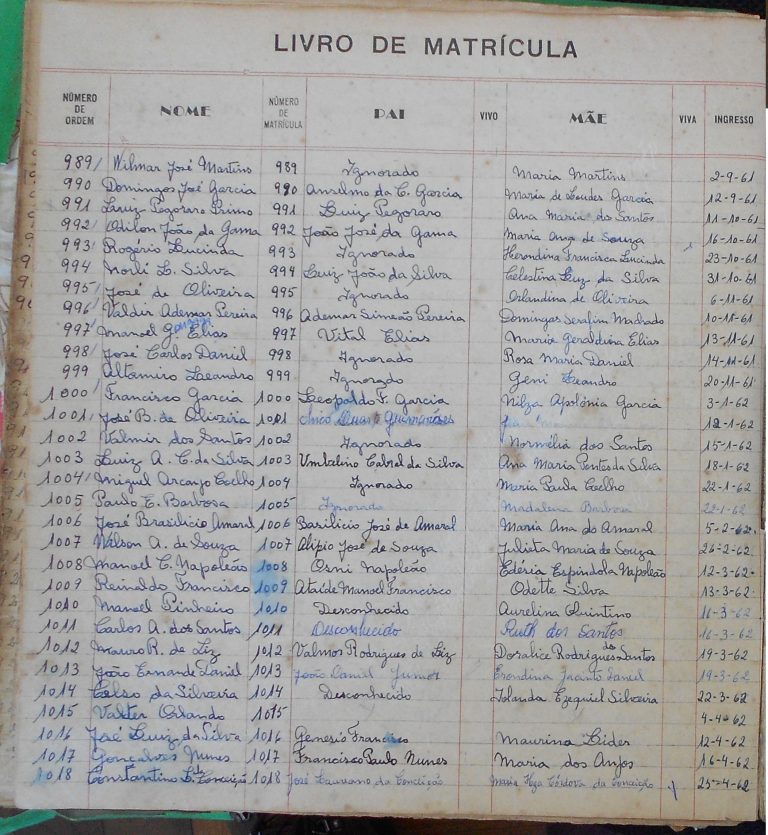 LIVRO DE MATRÍCULA
NÚMERO DE ORDEM NOME NÚMERO DE MATRÍCULA PAI VIVO MÃE VIVA INGRESSO
989 Wilmar José Martins 989 Ignorado Maria Martins 2-9-61
990 Domingos José Garcia 990 Anselmo da C. Garcia Maria de Loudes Garcia 12-9-61
991 Luiz Pegoraro Primo 991 Luiz Pegoraro Ana Maria dos Santos 11-10-61
992 Odilon João da Gama 992 João José da Gama Maria Ana de Souza 16-10-61
993 Rogério Lucinda 993 Ignorado Herondina Francisca Lucinda 23-10-61
994 Norli L. Silva 994 Luiz João da Silva Celestina Luz da Silva 31-10-61
995 José de Oliveira 995 Ignorado Orlandina de Oliveira 6-11-61
996 Valdir Ademar Pereira 996 Ademar Simeão Pereira Domingas Serafim Machado 10-11-61
997 Manoel G. Elias 997 Vital Elias Maria Geraldina Elias 13-11-61
998 José Carlos Daniel 998 Ignorado Rosa Maria Daniel 14-11-61
999 Altamiro Leandro 999 Ignorado Geni Leandro 20-11-61
1000 Francisco Garcia 1000 Leopoldo F. Garcia Nilza Apolônia Garcia 3-1-62
1001 José B. de Oliveira 1001 Guimarães 12-1-62
1002 Valmir dos Santos 1002 Ignorado Normélia dos Santos 15-1-62
1003 Luiz A. C. da Silva 1003 Umbelino Cabral da Silva Ana Maria Pontes da Silva 18-1-62
1004 Miguel Arcanjo Coelho 1004 Ignorado Maria Paula Coelho 22-1-62
1005 Paulo E. Barbosa 1005 Ignorado Madalena Barbosa 22-1-62
1006 José Brasilicio Amaral 1006 Basilicio José de Amaral Maria Ana do Amaral 5-2-62
1007 Nilson A. de Souza 1007 Alipio José de Souza Julieta Maria de Souza 26-2-62
1008 Manoel C. Napoleão 1008 Osni Napoleão Edéria Espindola Napoleão 12-3-62
1009 Reinaldo Francisco 1009 Ataíde Manoel Francisco Odette Silva 13-3-62
1010 Manoel Pinheiro 1010 Desconhecido Aurelina Quintino 16-3-62
1011 Carlos A. dos Santos 1011 Desconhecido Ruth dos Santos 16-3-62
1012 Mauro R. de Liz 1012 Valmor Rodrigues de Liz Doralice Rodrigues dos Santos 19-3-62
1013 João Ernande Daniel 1013 João Daniel Junior Erondina Jacinto Daniel 19-3-62
1014 Celso da Silveira 1014 Desconhecido Iolanda Ezequiel Silveira 22-3-62
1015 Valter Orlando 1015 4-4-62
1016 José Luiz da Silva 1016 Genesio Francisco Maurina Lider 12-4-62
1017 Gonçalves Nunes 1017 Francisco Paulo Nunes Maria dos Anjos 16-4-62
1018 Constantino L. da Conceição 1018 José Laurano da Conceição Maria Córdova da Conceição 25-4-62